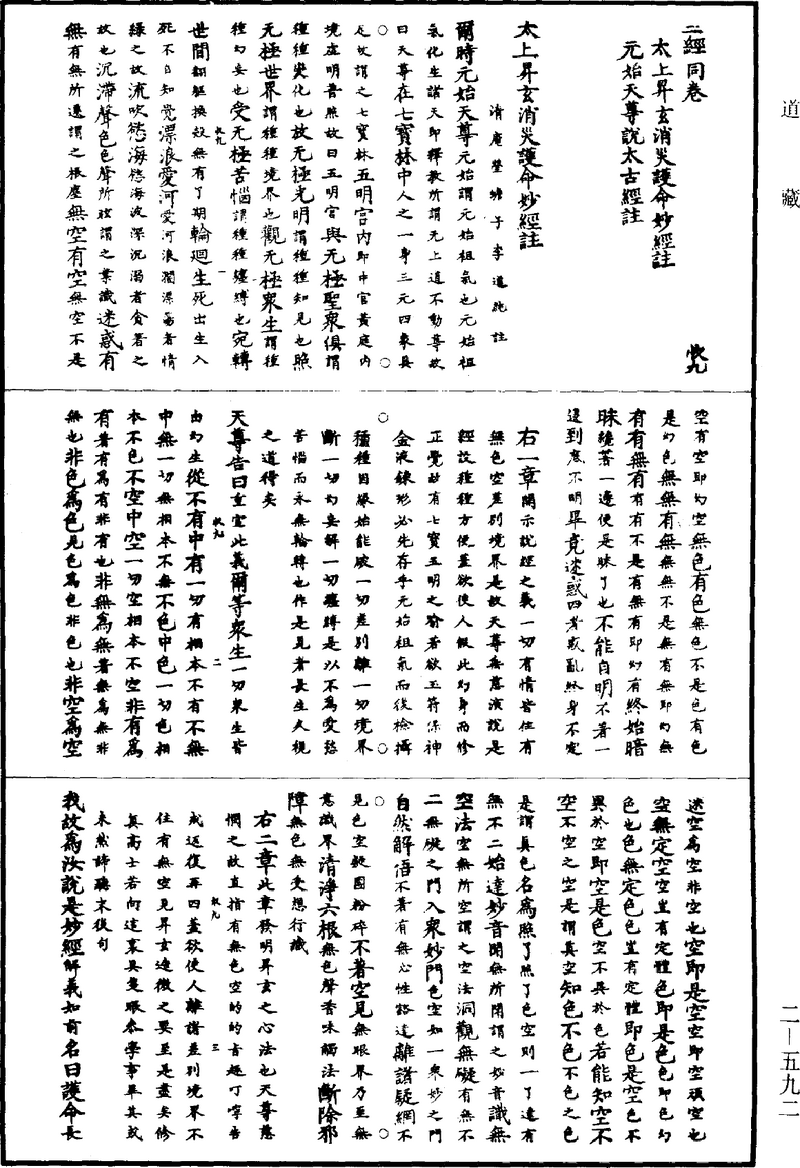 道藏
二—五九二
二經同卷
太上昇玄消災護命妙經註
元始天尊說太古經註
收九
太上昇玄消災護命妙經註
清庵瑩蟾子李道純註
爾時元始天尊元始謂元始祖氣也元始祖
氣化生諸天即釋教所謂无上道不動尊故
曰天尊在七寶林中人之一身三元四象具
足故謂之七寶林五明宮內即中宮黃庭內
境虛明普照故曰五明宮與无極聖眾俱謂
種種變化也放无極光明謂種種知見也照
无極世界謂種種境界也觀无極眾生謂種
種幻妄也受无極苦惱謂種種纏縛也宛轉
世間翻軀換殼無有了期輪迴生死出生入
死不自知覺漂浪愛河愛河浪濶漂蕩者情
緣之故流吹慾海慾海波深沉溺者貪著之
故也沉滯聲色色聲所眩謂之業識迷惑有
無有無所遷謂之根塵無空有空無空不是
空有空即幻空無色有色無色不是色有色
是幻色無無有無無無不是無有無即幻無
有有無有有有不是有無有即幻有終始暗
昧纔著一邊便是昧了也不能自明不著一
邊到底不明畢竟迷惑四者惑亂終身不定
右一章開示說經之義一切有情皆住有
無色空差別境界是故天尊無慈演說是
經設種種方便蓋欲使人假此幻身而修
正覺故有七寶五明之喻若欲玉符保神
金液鍊形必先存乎元始祖氣而後檢攝
種種因緣始能破一切差別離一切境界
斷一切幻妄解一切纏縛是以不為愛慾
苦惱而永無輪轉也作是見者長生久視
之道得矣
天尊告曰重宣此義爾等眾生一切眾生皆
由幻生從不有中有一切有相本不有不無
中無一切無相本不無不色中色一切色相
本不色不空中空一切空相本不空非有為
有著有為有非有也非無為無著無為無非
無也非色為色見色為色非色也非空為空
迷空為空非空也空即是空空即空頑空也
空無定空空豈有定體色即是色色即色幻
色也色無定色色豈有定體即色是空色不
異於空即空是色空不異於色若能知空不
空不空之空是謂真空知色不色不色之色
是謂真色名為照了照了色空則一了還有
無不二始達妙音聞無所聞謂之妙音識無
空法空無所空謂之空法洞觀無礙有無不
二無礙之門入眾妙門色空如一眾妙之門
自然解悟不著有無心性豁達離諸疑網不
見色空疑團粉碎不著空見無眼界乃至無
意識界清淨六根無色聲香味觸法斷除邪
障無色無受想行識
右二章此章發明昇玄之心法也天尊慈
憫之故直指有無色空的的旨趣叮嚀告
戒返復再四蓋欲使人離諸差別境界不
住有無空見昇玄造微之要至是盡矣修
真高士若向這裏具隻眼參學事畢其或
未然諦聽末後句
我故為汝說是妙經解義如前名曰護命長